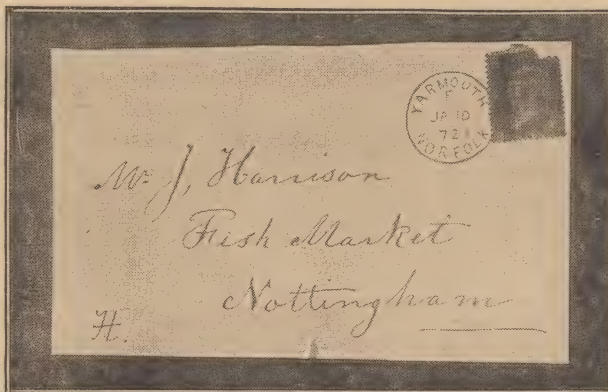 YARMOUTH
F
JA 10
72
NORFOLK
Mr J, Harrison
Fish Market
Nottingham
H.